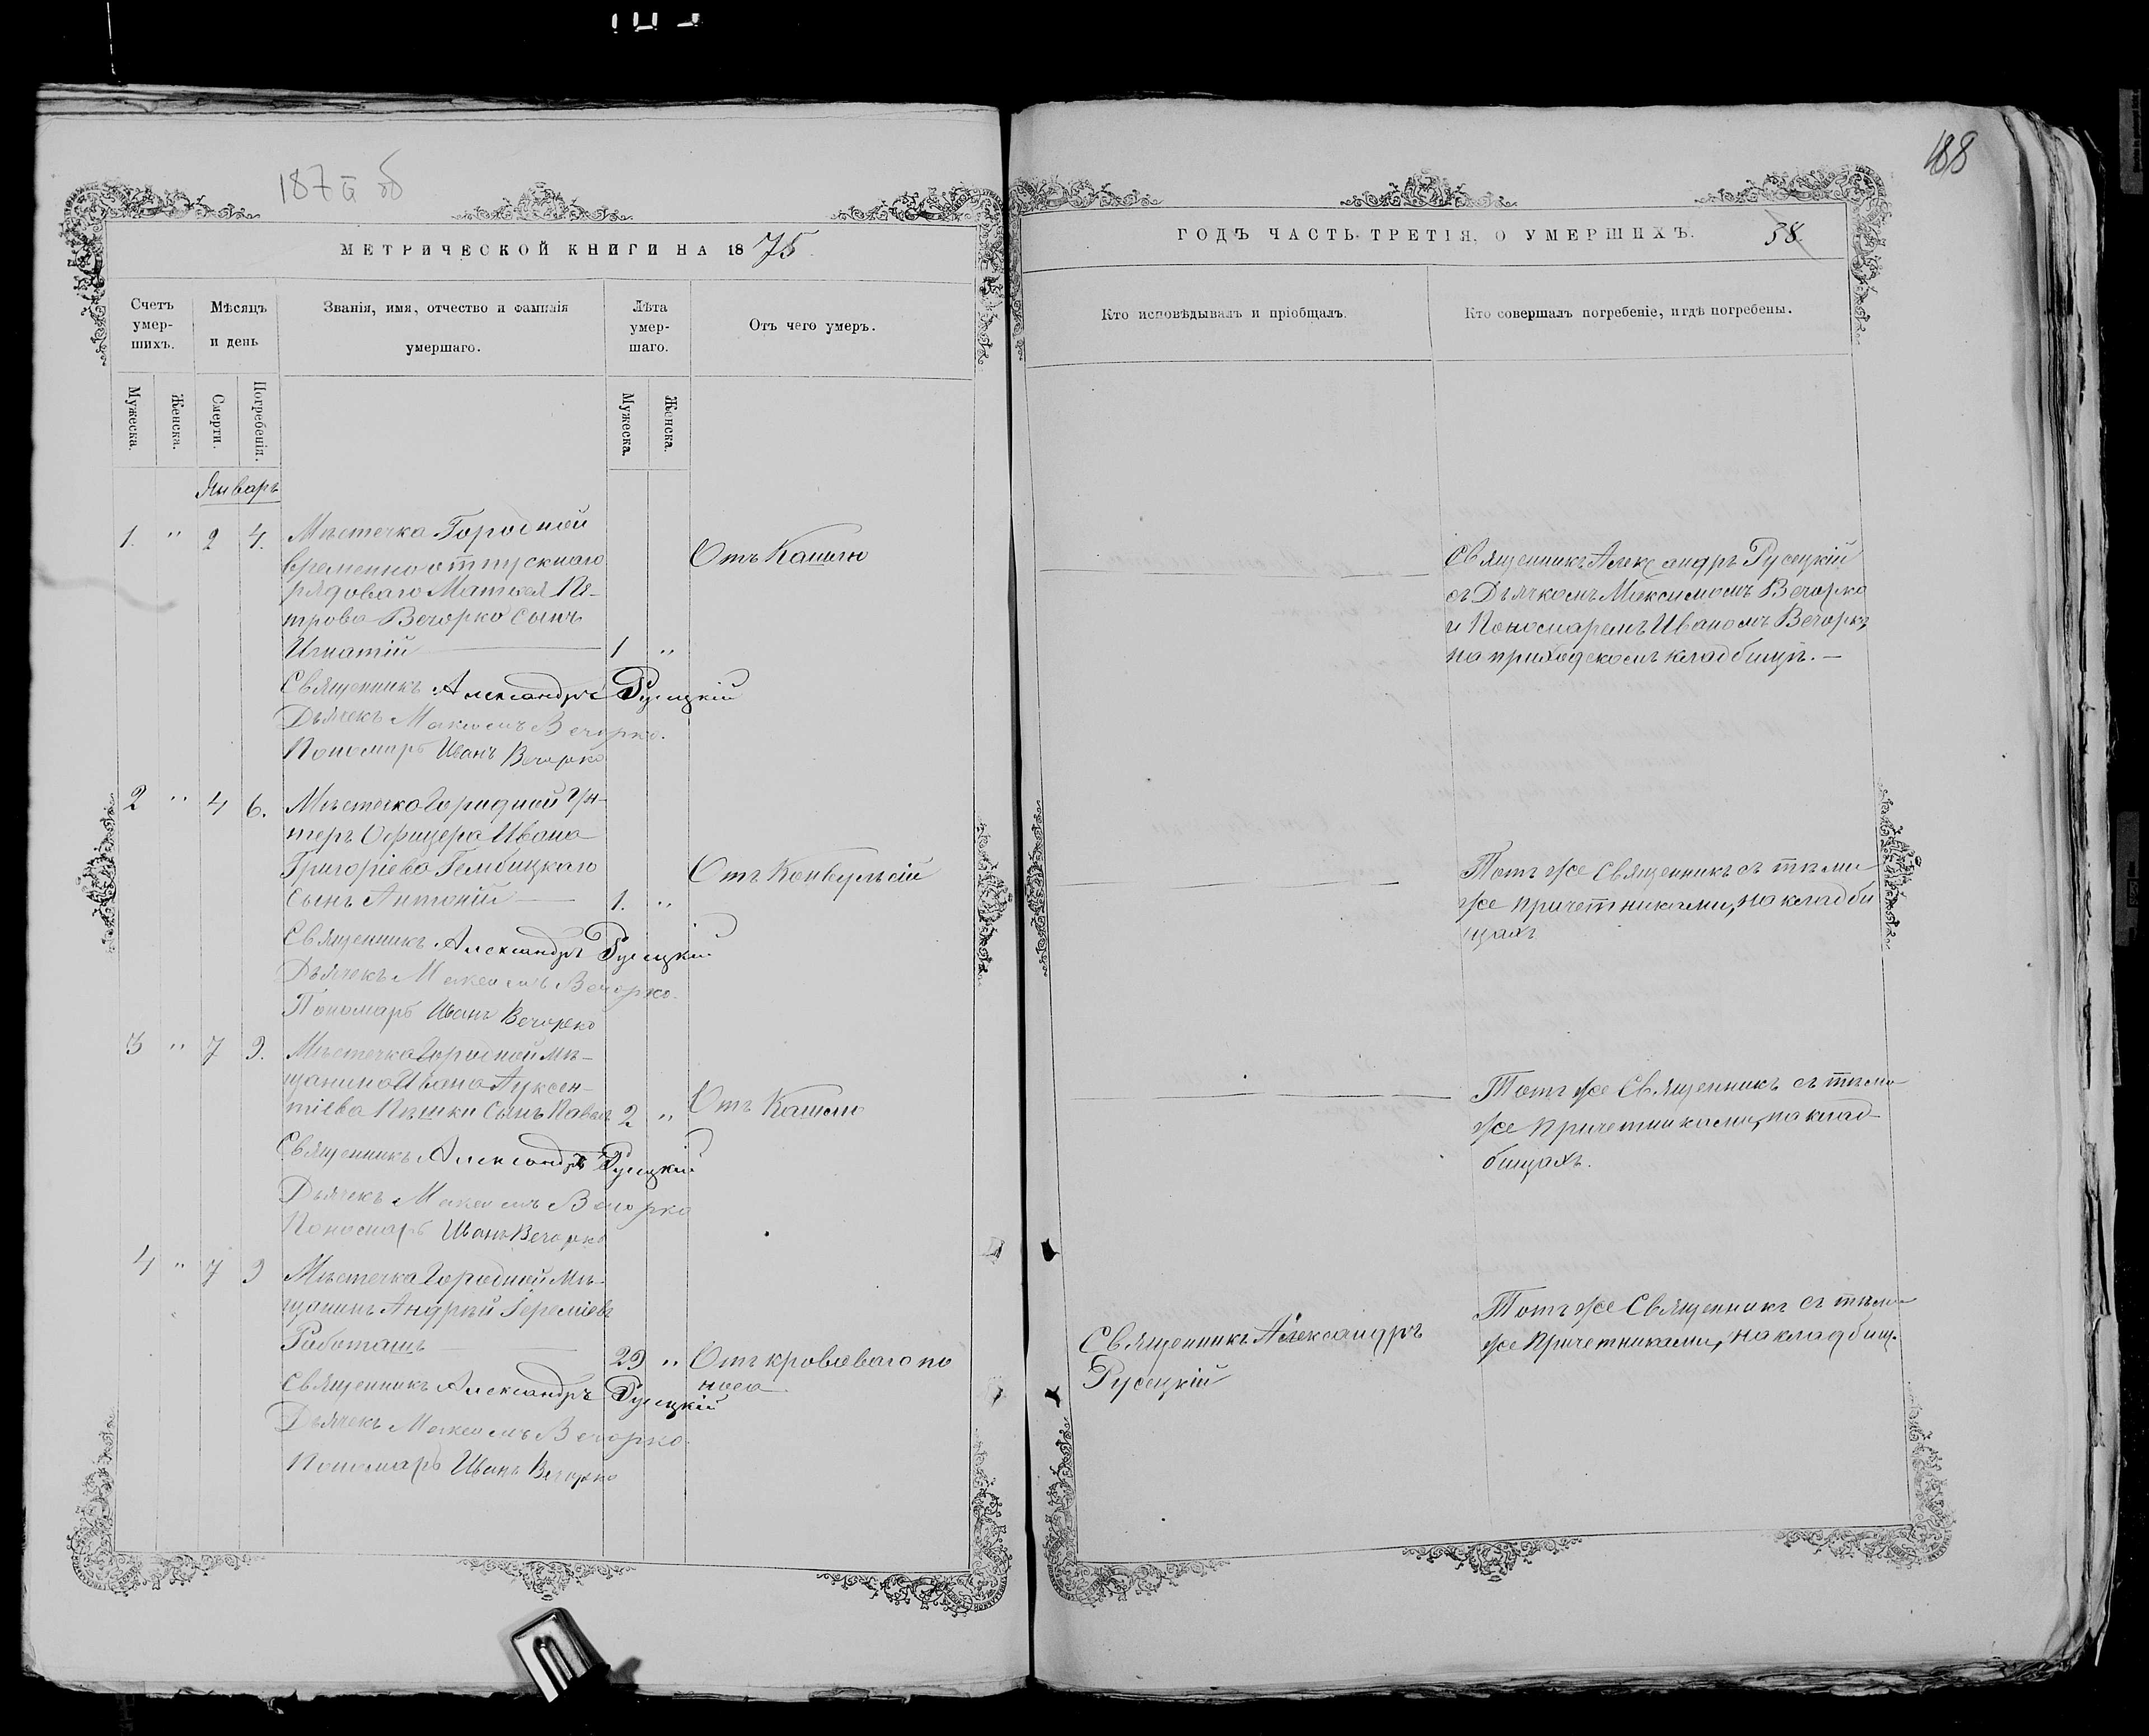 187 б об
МЕТРИЧЕСКОЙ КНИГИ НА 1875
Счетъ умер-шихъ.
Мѣсяцъ и день
Званія, имя, отчество и фамилія умершаго.
Лѣта умер-шаго.
Отъ чего умеръ.
Мужеска.
Женска.
Смерти.
Погребенія.
Мужеска
Женска.
Январь
1. " 2 4. Мѣстечка Городной
временноотпускнаго
рядоваго Матвея Пе-
трова Вечорко сынъ
Игнатій 1 "
Отъ Кашлю
Священникъ Александръ Русецкій
Дьячекъ Максимъ Вечорко.
Пономарь Иванъ Вечорко
2 " 4 6. Мѣстечка Городной Ун-
теръ Офицера Ивана
Григоріева Гембицкаго
сынъ Антоній 1. "
Отъ Конвульсій
Священникъ Александръ Русецкій
Дьячекъ Максимъ Вечорко.
Пономарь Иванъ Вечорко
3 " 7 9. Мѣстечка Городной мѣ-
щанина Ивана Ауксен-
тіева Пѣшки сынъ Павелъ 2 "
Отъ Кашлю
Священникъ Александръ Русецкій
Дьячекъ Максимъ Вечорко
Пономарь Иванъ Вечорко
4 " 7 9 Мѣстечка Городной Мѣ-
щанинъ Андрей Іереміевъ
Работашъ 29 "
Отъ кроваваго по
носа
Священникъ Александръ Русецкій
Дьячекъ Максимъ Вечорко.
Пономарь Иванъ Вечорко
188
ГОДЪ ЧАСТЬ ТРЕТІЯ, О УМЕРШИХЪ.
38.
Кто исповѣдывалъ и пріобщалъ.
Кто совершалъ погребеніе, и гдѣ погребены.
Священникъ Александръ Русецкій
съ Дьячкомъ Максимомъ Вечорко
и Пономаремъ Иваномъ Вечорко,
на приходскомъ кладбищѣ. —
Тотъ же Священникъ съ тѣми
же причетниками, на кладби
щахъ
Тотъ же Священникъ съ тѣми
же причетниками, на клад-
бищахъ.
Священникъ Александръ
Русецкій
Тотъ же Священникъ съ тѣми
же Причетниками, на кладбищ.